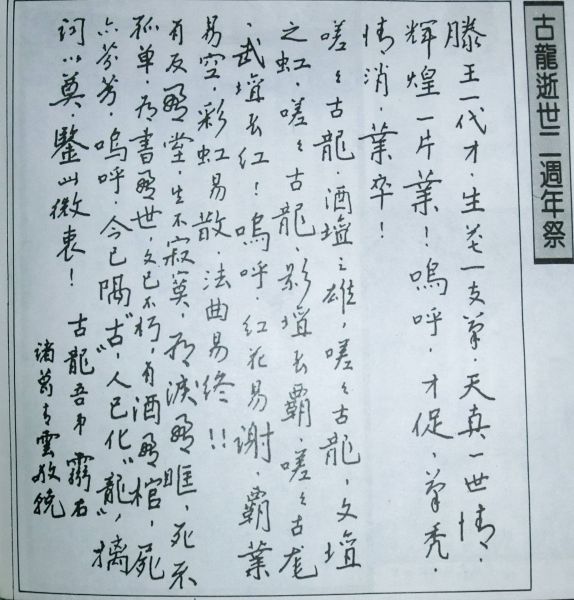 古龍逝世二週年祭
滕王一代才,生花一支筆,天真一世情,
輝煌一片業!嗚呼,才促,筆禿,
情消,業卒!
嗟々古龍,酒壇之雄,嗟々古龍,文壇
之虹,嗟々古龍,影壇長霸,嗟々古龙
,武壇長紅!嗚呼,紅花易謝,霸業
易空,彩虹易散,法曲易終!!
有友盈堂,生不寂寞,有淚盈眶,死不
孤单,有書盈世,文已不朽,有酒盈棺,屍
亦芬芳,嗚呼,今已隔“古”,人已化“龍”,摛
詞以奠,鑒此微衷!
古龍吾弟 靈右
諸葛青雲敬輓